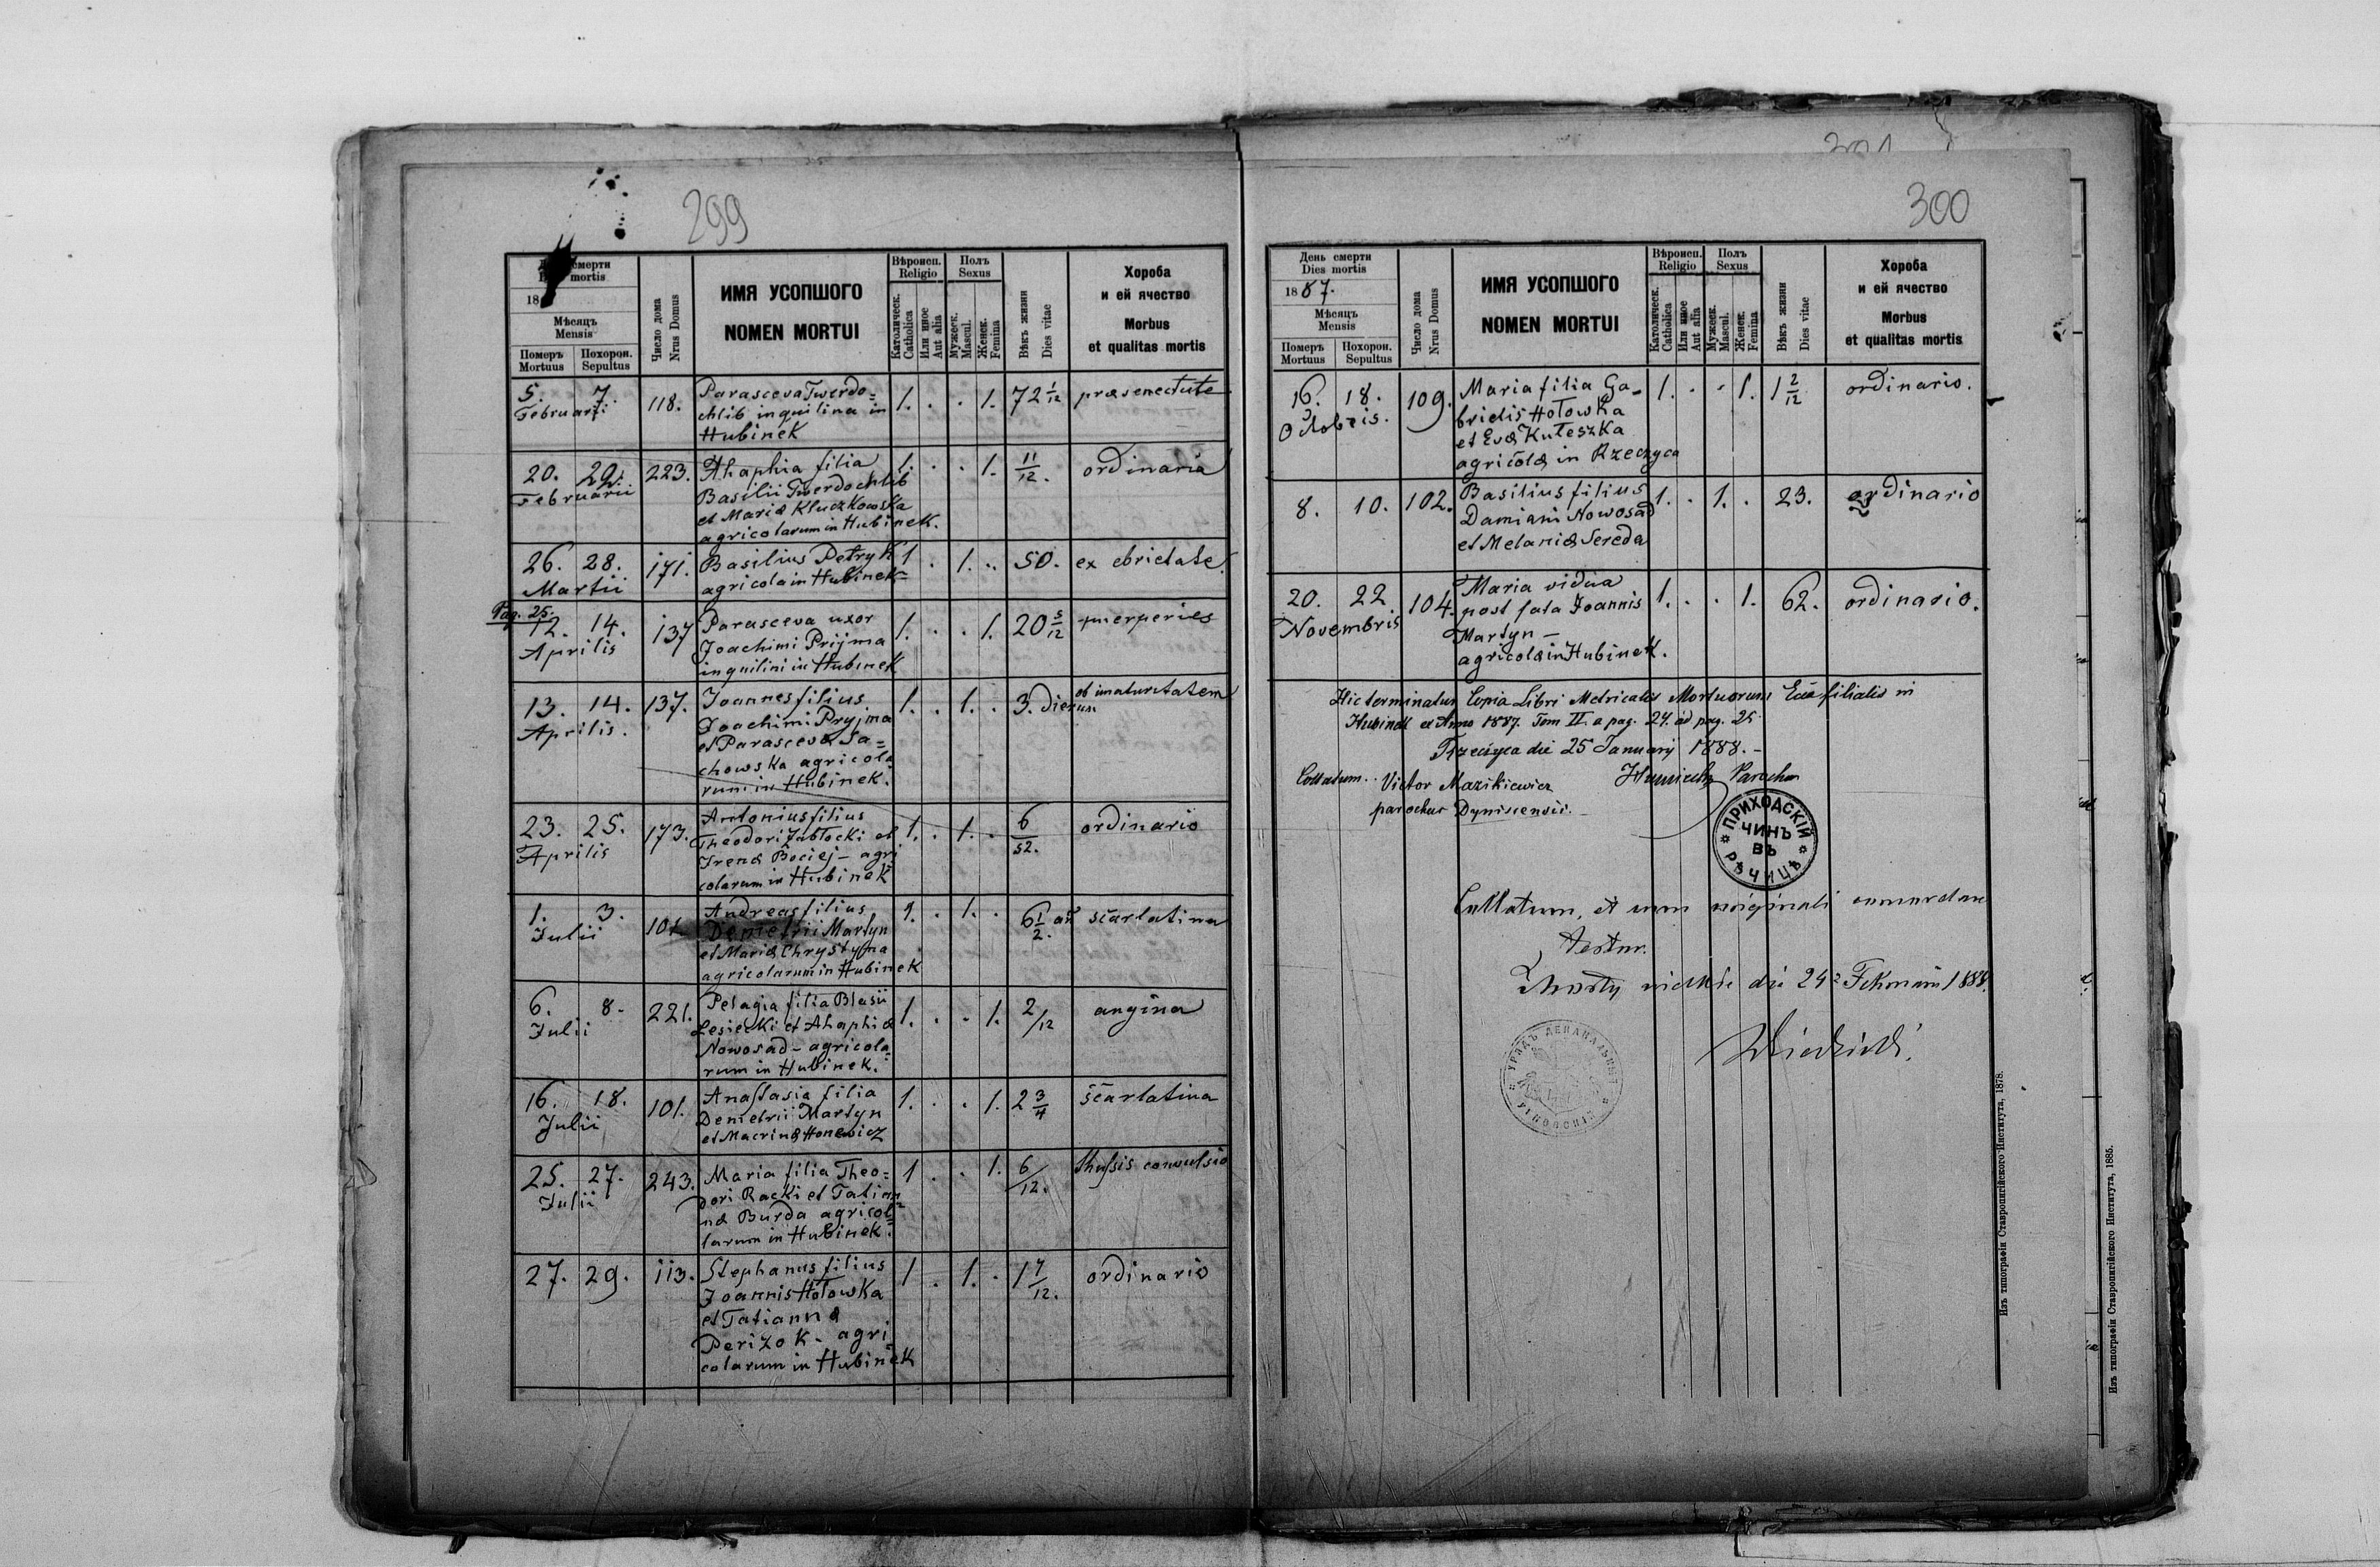 299
День смерти
Dies mortis
18
Мѣсяцъ
Mensis
Померъ
Mortuus
Похорон.
Sepultus
Число дома
Nrus Domus
ИМЯ УСОПШОГО
NOMEN MORTUI
Вѣроисп.
Religio
Католическ.
Catholica
Или иное
Aut alia
Полъ
Sexus
Мужеск.
Mascul.
Женск.
Femina
Вѣкъ жизни
Dies vitae
Хороба
и ей ячество
Morbus
et qualitas mortis
5. 7. 118. Parasceva Twerdo= 1. . . 1. 72 1/12 præ senectute
Februarii chlib inquilina in
Hubinek
20. 22. 223. Ahaphia filia 1. . . 1. 11/12. ordinaria
Februarii Basilii Twerdochlib
et Mariæ Kluczkowska
agricolarum in Hubinek.
26. 28. 171. Basilius Petryk 1 . 1. . 50. ex ebrietate.
Martii agricola in Hubinek
Pag. 25.
12. 14. 137 Parasceva uxor 1. . . 1. 20 5/12 puerperies
Aprilis Joachimi Prijma
inquilini in Hubinek
13. 14. 137. Joannes filius 1. . 1. . 3. dierum ob imaturitatem
Aprilis. Joachimi Pryjma
et Parascevæ Sa=
chowska agricola
rum in Hubinek.
23. 25. 173. Antonius filius 1. . 1. . 6/52. ordinario
Aprilis Theodori Zabłocki et
Irenæ Bociej - agri
colarum in Hubinek
1. 3. 101. Andreas filius 1. . 1. . 6 1/2. an scarlatina
Julii Demetrii Martyn
et Mariæ Chrystyna
agricolarum in Hubinek
6. 8. 221. Pelagia filia Blasii 1. . . 1. 2/12 angina
Julii Lesiecki et Ahaphiæ
Nowosad - agricola=
rum in Hubinek.
16. 18. 101. Anastasia filia 1. . . 1. 2 3/4 scarlatina
Julii Demetrii Martyn
et Macrinæ Honewicz
25. 27. 243. Maria filia Theo= 1 . . 1. 6/12. thussis convulsio
Julii dori Racki et Tatian
næ Burda agrico=
larum in Hubinek.
27. 29. 113. Stephanus filius 1 . 1. . 1 7/12. ordinario
Joannis Hołowka
et Tatiannæ
Perizok - agri
colarum in Hubinek
301
300
День смерти
Dies mortis
1887.
Мѣсяцъ
Mensis
Померъ
Mortuus
Похорон.
Sepultus
Число дома
Nrus Domus
ИМЯ УСОПШОГО
NOMEN MORTUI
Вѣроисп.
Religio
Католическ.
Catholica
Или иное
Aut alia
Полъ
Sexus
Мужеск.
Mascul.
Женск.
Femina
Вѣкъ жизни
Dies vitae
Хороба
и ей ячество
Morbus
et qualitas mortis
16. 18. 109. Maria filia Ga- 1. . . 1. 1 2/12 ordinario.
Octobris. brielis Hołowka
et Evæ Kuteszka
agricolæ in Rzeczyca
8. 10. 102. Basilius filius 1. . 1. . 23. ordinario
Damiani Nowosad
et Melaniæ Sereda
20. 22. 104. Maria vidua 1. . . 1. 62. ordinario.
Novembris post fata Joannis
Martyn -
agricolæ in Hubinek.
Hic terminatur Copia Libri Metricalis Mortuorum Eccæ filialis in
Hubinek ex Anno 1887. Tom II. a pag. 24. ad pag. 25.
Rzeczyca die 25 Januarij 1888. -
Parochus
Collatum. Victor Mazikiewicz
parochus Dyniscensis. -
ПРИХОДСКІЙ
ЧИНЪ
ВЪ
РѢЧИЦѢ
Collatum, et cum originali concordare
testor.
die 24 Februarii 1888.
УРЯДЪ ДЕКАНАЛЬНЫЙ
Изъ типографіи Ставропигійского Института, 1878.
Изъ типографіи Ставропигійского Института, 1885.